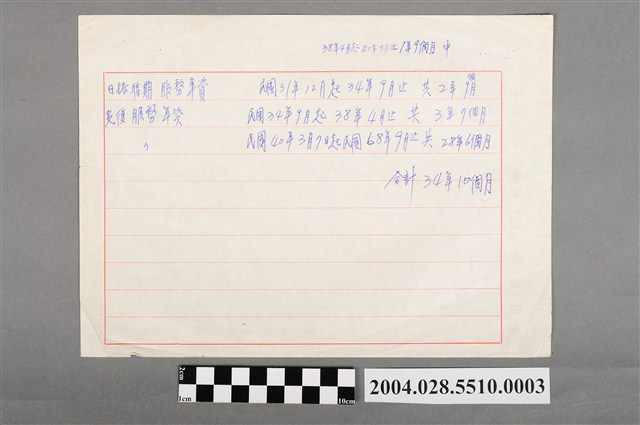 38年4月起40年3月止 1年9個月 中
日據時期 服務年資 民國31年12月起 34年9月止 共 2年9個月
光復服務年資 民國34年9月起 38年4月止 共 3年7個月
〃 民國40年3月7日起民國68年9月止共 28年6個月
合計 34年10個月
2cm
1cm
10cm
2004.028.5510.0003